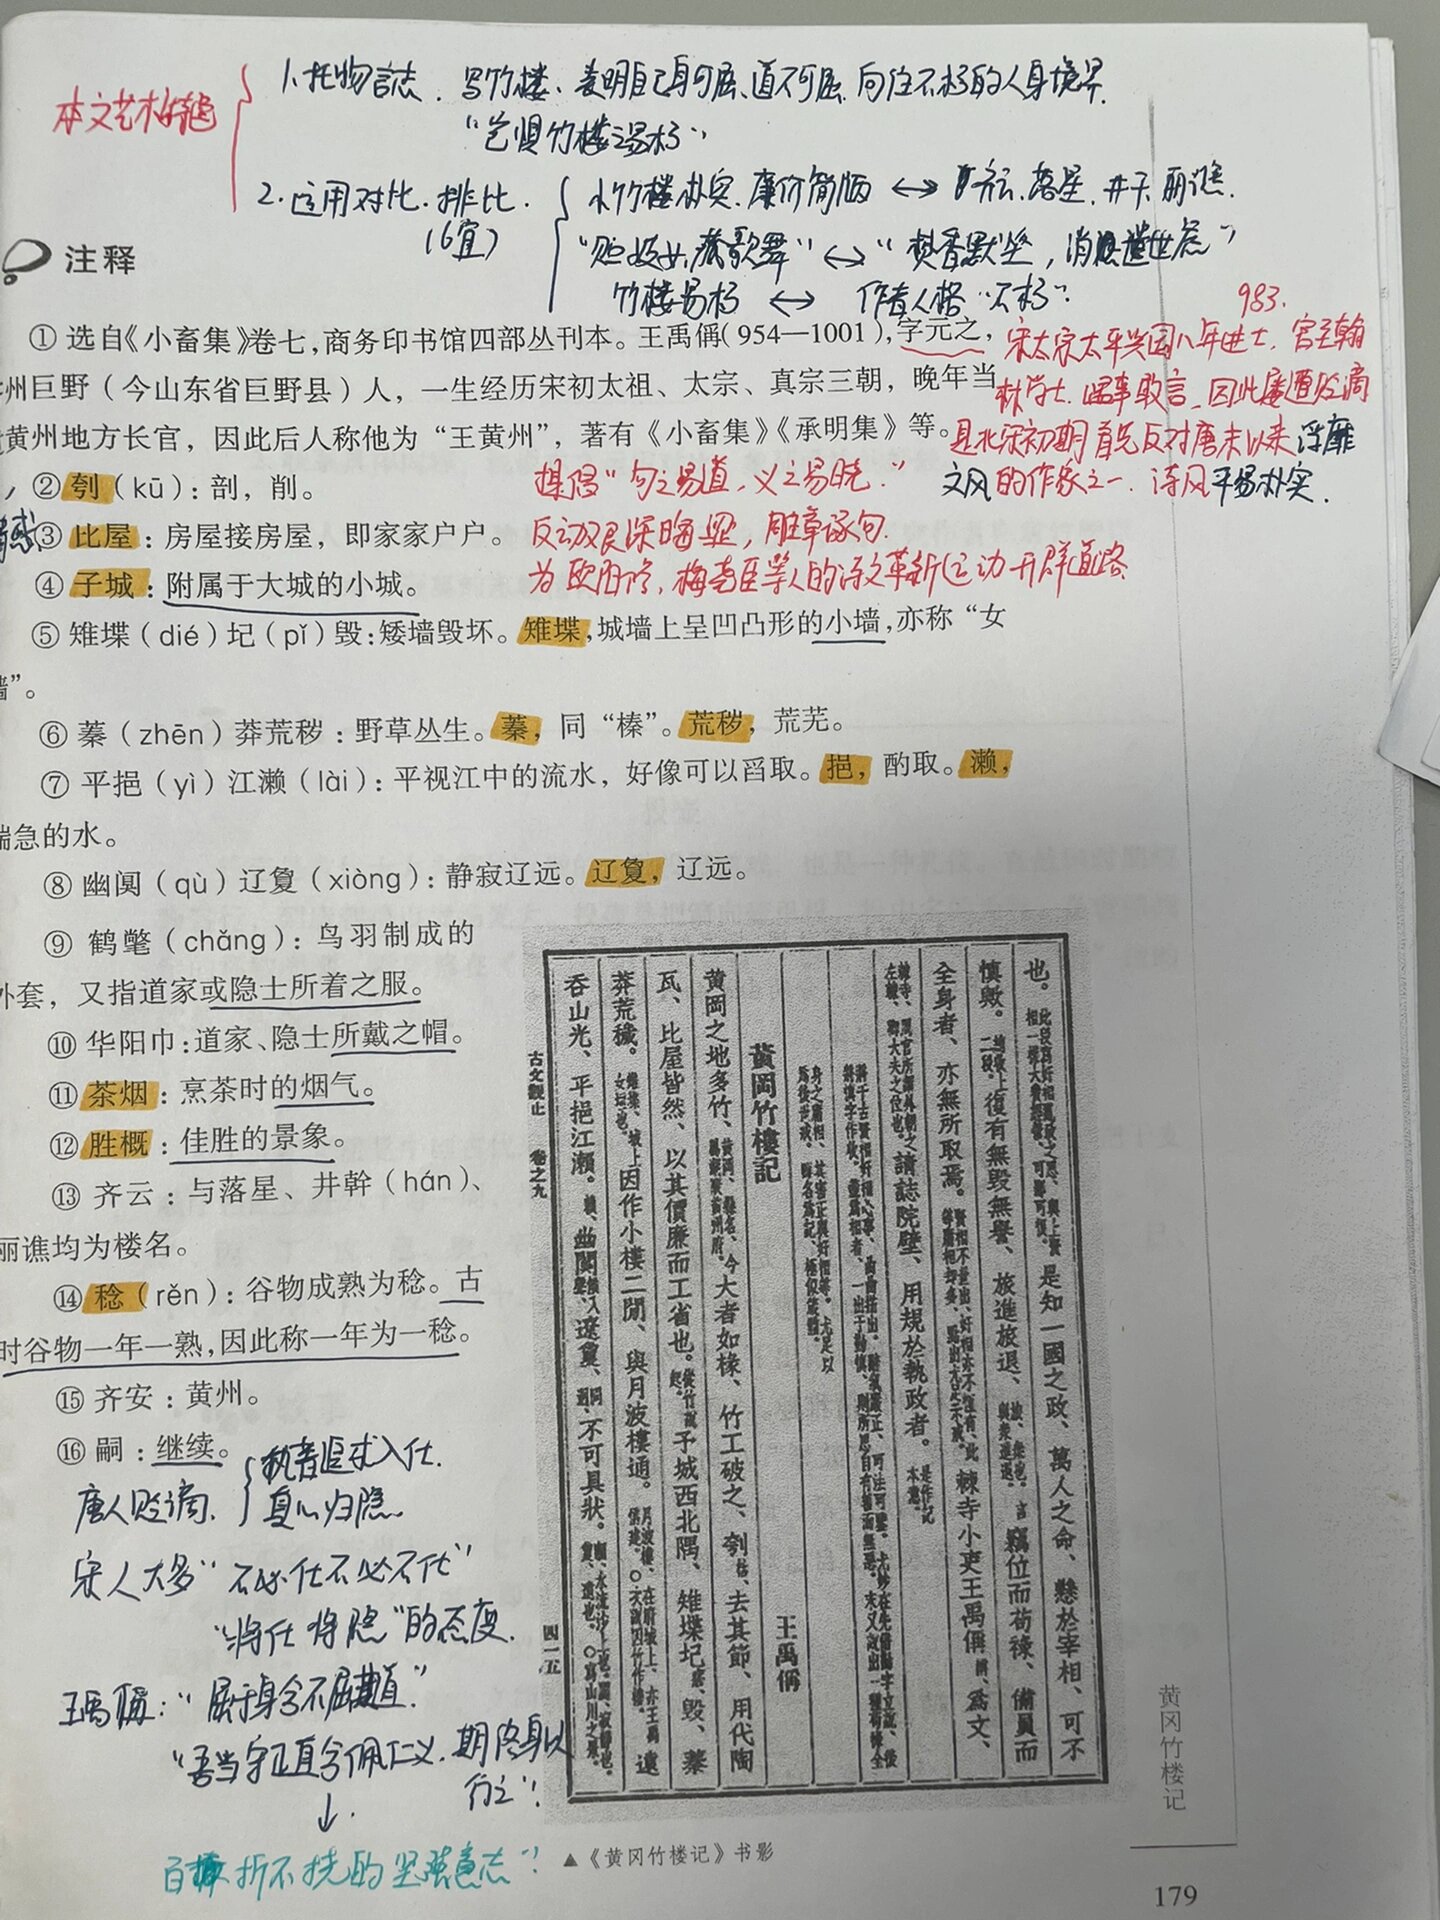 本文艺术特色
1.托物言志.写竹楼、表明自己身可屈、道不可屈.向往不朽的人身境界.
“岂惧竹楼之易朽”
2.运用对比.排比.
(6宜)
小竹楼朴实.廉价简陋 ↔ 齐云.落星.井干.丽谯.
“贮妓女,藏歌舞” ↔ “焚香默坐,消遣世虑”
竹楼易朽 ↔ 作者人格“不朽”.
注释
983.
①选自《小畜集》卷七,商务印书馆四部丛刊本。王禹偁(954—1001),字元之,
宋太宗太平兴国八年进士.官至翰
州巨野(今山东省巨野县)人,一生经历宋初太祖、太宗、真宗三朝,晚年当
林学士.遇事敢言、因此屡遭贬谪
黄州地方长官,因此后人称他为“王黄州”,著有《小畜集》《承明集》等。
是北宋初期首先反对唐末以来浮靡
文风的作家之一.诗风平易朴实.
提倡“句之易道,义之易晓.”
②刳(kū):剖,削。
③比屋:房屋接房屋,即家家户户。
反动艰深晦涩,雕章琢句.
④子城:附属于大城的小城。
为欧阳修,梅尧臣等人的诗文革新运动开辟道路
⑤雉堞(dié)圮(pǐ)毁:矮墙毁坏。雉堞,城墙上呈凹凸形的小墙,亦称“女
墙”。
⑥蓁(zhēn)莽荒秽:野草丛生。蓁,同“榛”。荒秽,荒芜。
⑦平挹(yì)江濑(lài):平视江中的流水,好像可以舀取。挹,酌取。濑,
湍急的水。
⑧幽阒(qù)辽夐(xiòng):静寂辽远。辽夐,辽远。
⑨鹤氅(chǎng):鸟羽制成的
外套,又指道家或隐士所着之服。
⑩华阳巾:道家、隐士所戴之帽。
⑪茶烟:烹茶时的烟气。
⑫胜概:佳胜的景象。
⑬齐云:与落星、井幹(hán)、
丽谯均为楼名。
⑭稔(rěn):谷物成熟为稔。古
时谷物一年一熟,因此称一年为一稔。
⑮齐安:黄州。
⑯嗣:继续。
唐人贬谪.
执着追求入仕.
真心归隐.
宋人大多“不必仕不必不仕”
“将仕将隐”的态度.
王禹偁:“屈于身兮不屈其道”
“吾当守正直兮佩仁义.期终身以
行之”.
↓.
百折不挠的坚强意志”.
也。
是知一國之政、萬人之命、懸於宰相、可不
慎歟。
復有無毀無譽、旅進旅退、
竊位而苟祿、備員而
全身者、亦無所取焉。
棘寺小吏王禹偁
爲文、
請誌院壁、用規於執政者。
黃岡竹樓記
王禹偁
黃岡之地多竹、
大者如椽、竹工破之、刳
去其節、用代陶
瓦、比屋皆然、以其價廉而工省也。
子城西北隅、雉堞圮
毀、蓁
莽荒穢。
因作小樓二間、與月波樓通。
遠
吞山光、平挹江瀨。
幽闃
遼夐、
不可具狀。
古文觀止 卷之九
四一五
▲《黄冈竹楼记》书影
黄冈竹楼记
179